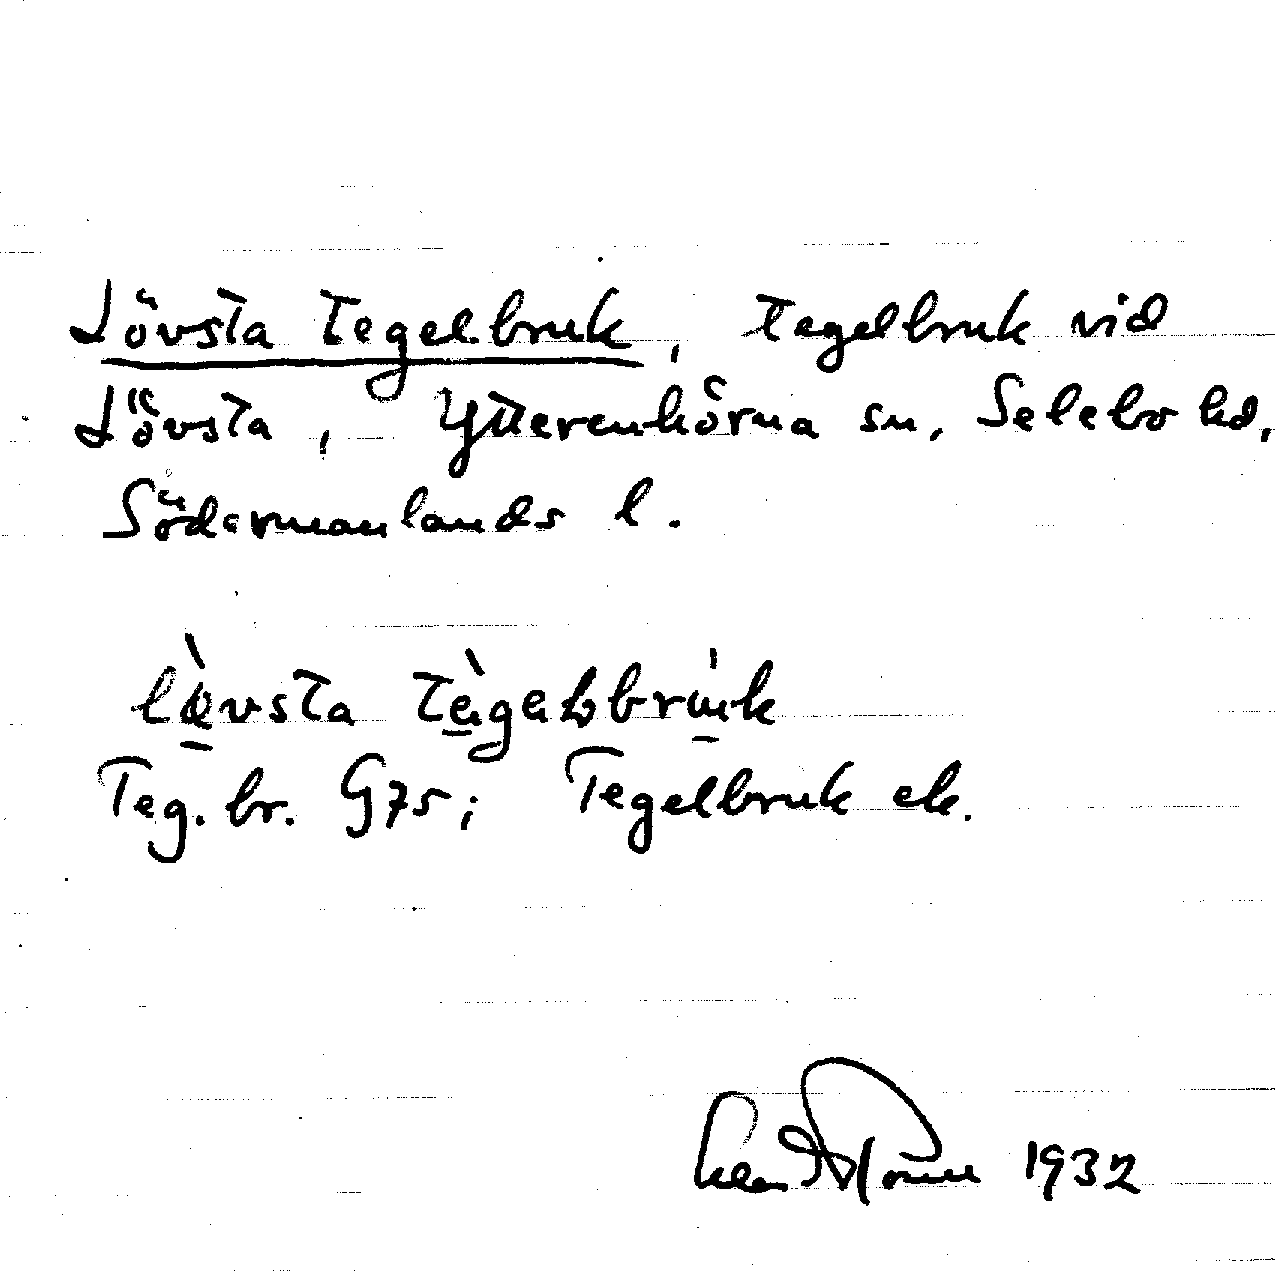 Lövsta Tegelbruk, tegelbruk vid
Lövsta, Ytterenhörna sn, Selebo hd,
Södermanlands l.
Teg. br. G75; Tegelbruk ek.
1932